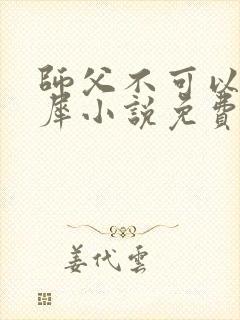 師父不可以
犀小説免費
姜代雲